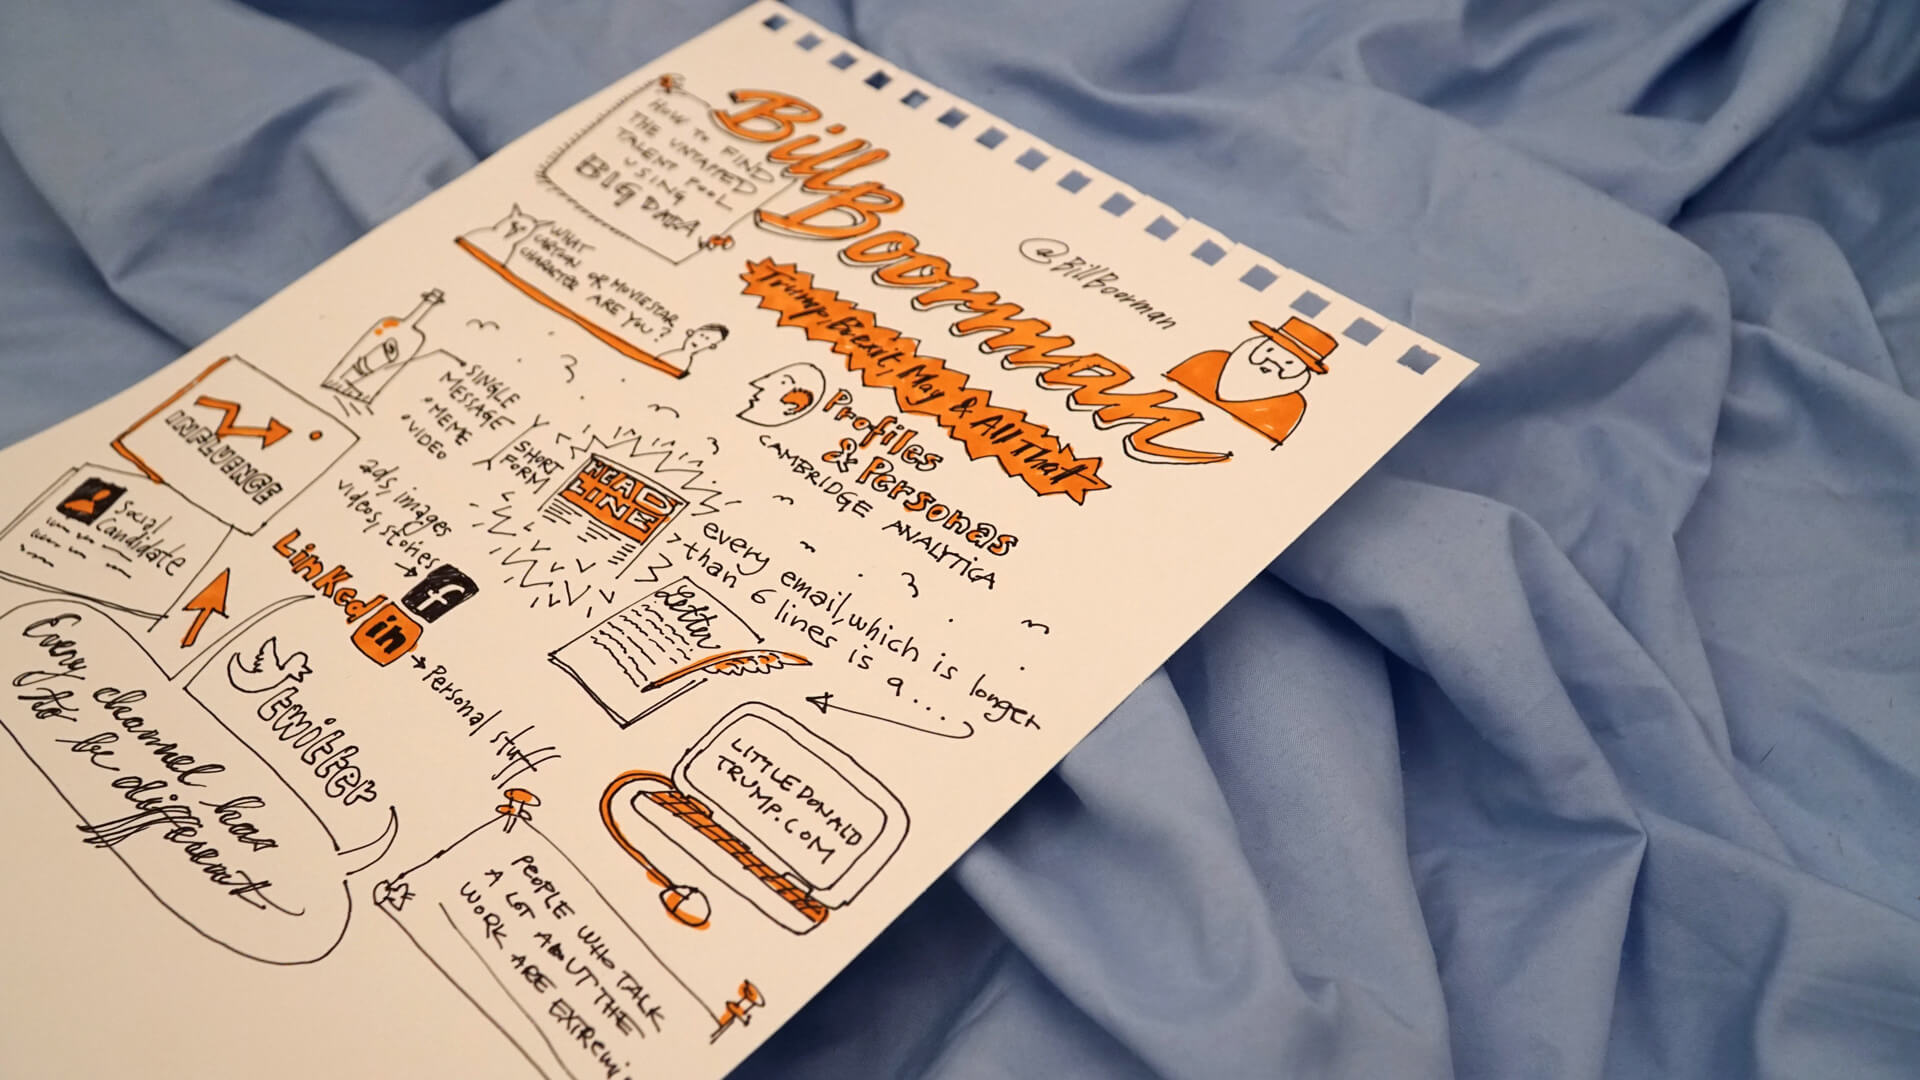 HOW TO FIND
THE UNTAPPED
TALENT POOL
USING
BIG DATA
Bill Boorman
@BillBoorman
WHAT
CARTOON OR MOVIE STAR
CHARACTER ARE YOU?
Trump, Brexit, May & All That
Profiles
& Personas
CAMBRIDGE ANALYTICA
SINGLE
MESSAGE
MEME
VIDEO
SHORT
FORM
HEAD
LINE
INFLUENCE
Social
Candidate
ads, images
videos, stories
f
LinKed in
Personal stuff
every email, which is longer
than 6 lines is a...
Letter
twitter
Every channel has
to be different
LITTLE DONALD
TRUMP.COM
PEOPLE WHO TALK
A LOT ABOUT THE
WORK ARE